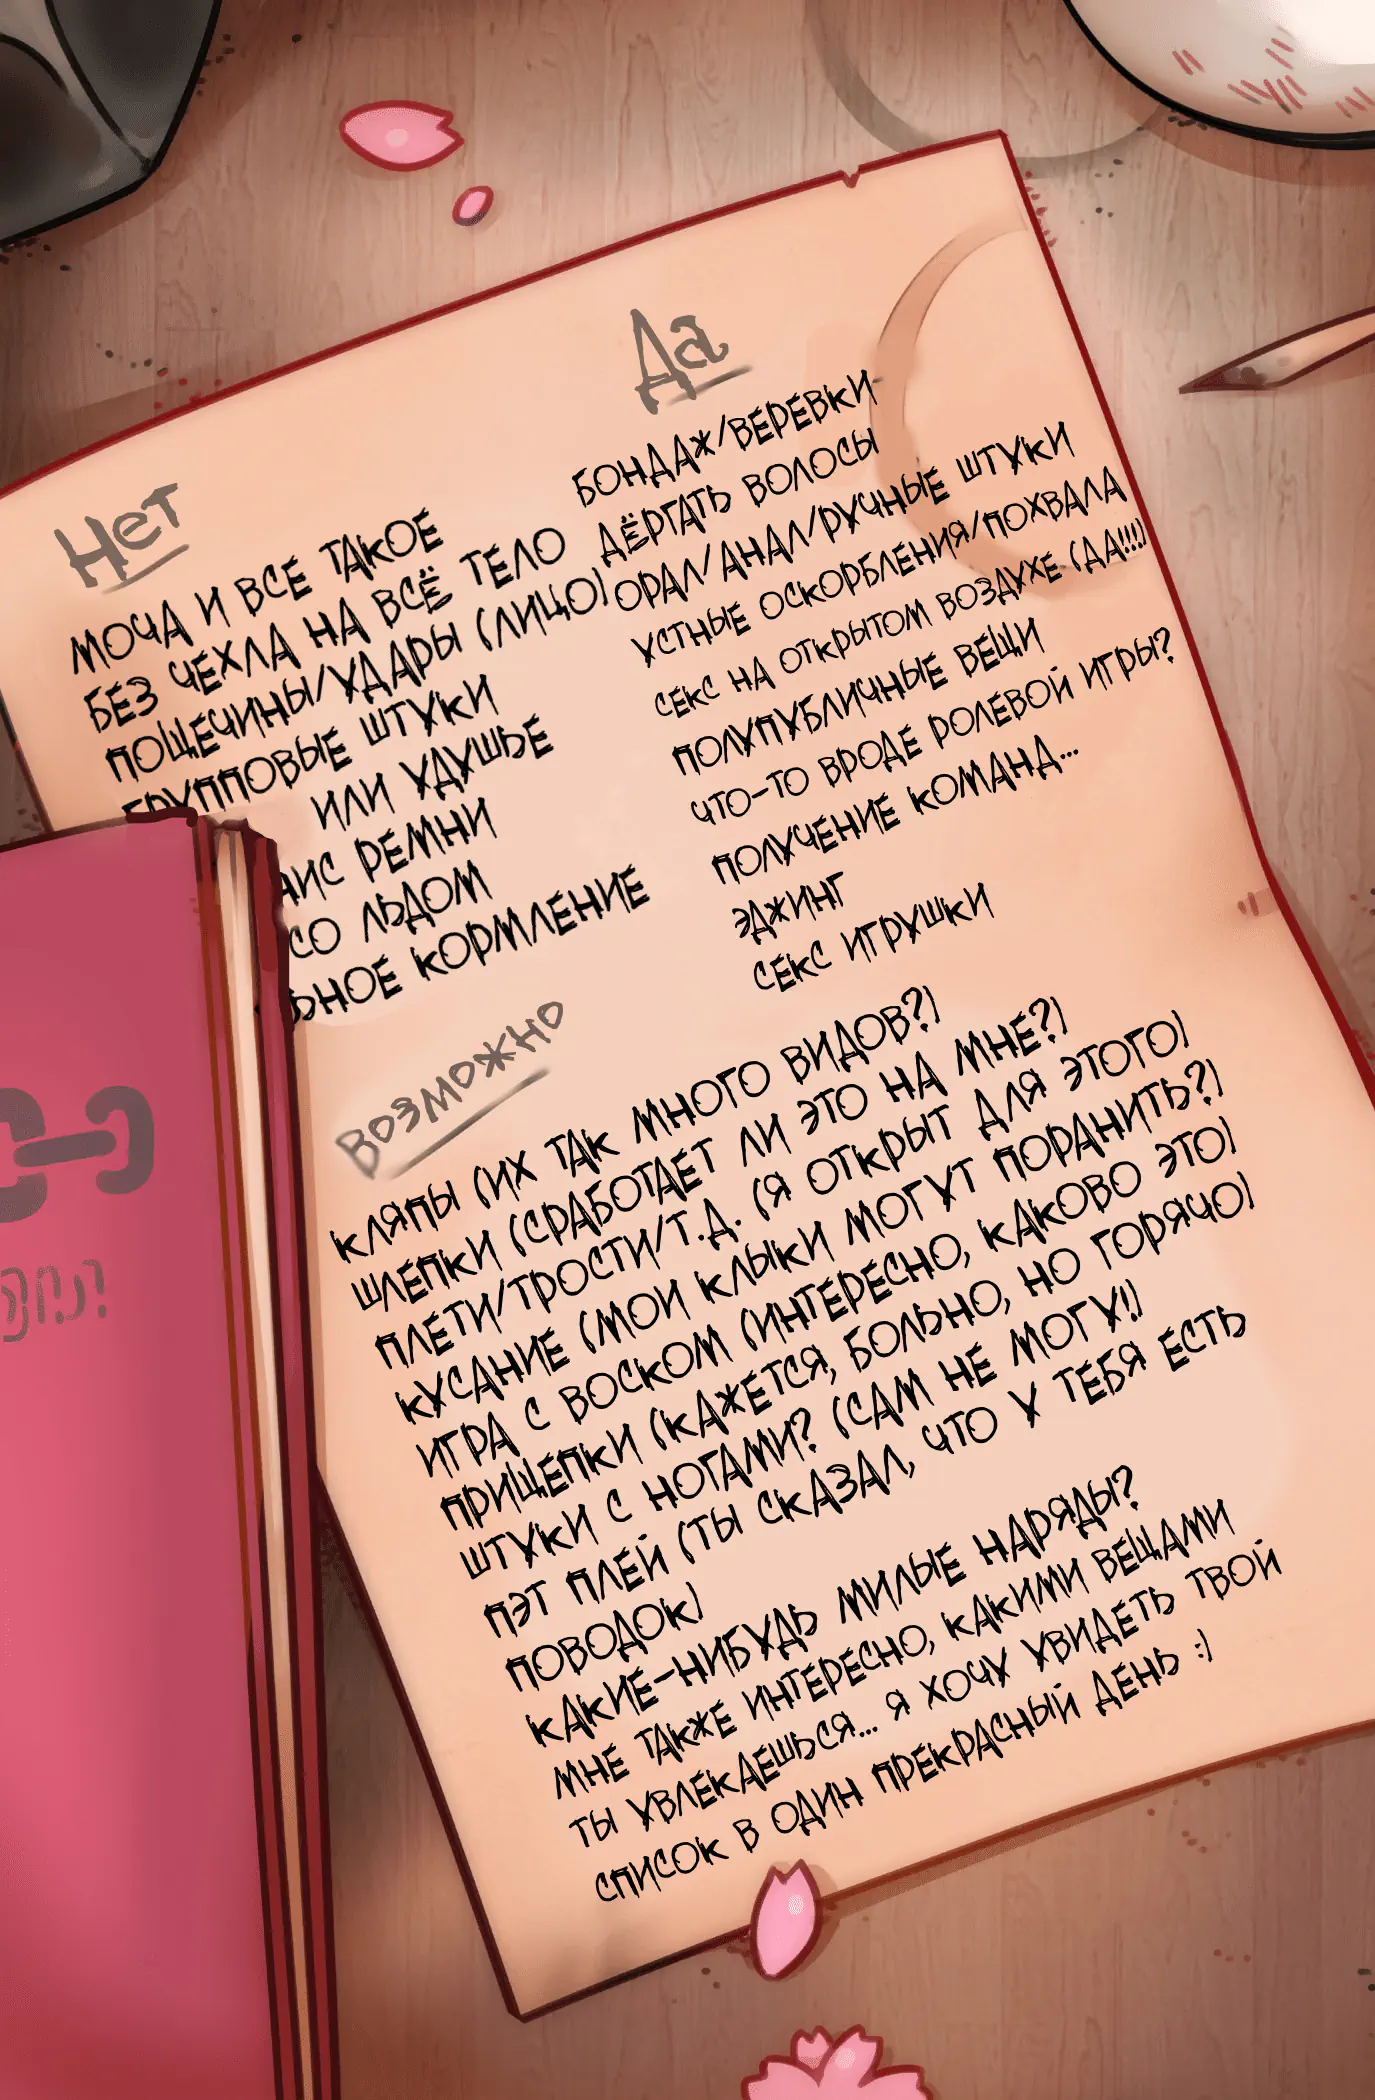 Нет
МОЧА И ВСЕ ТАКОЕ
БЕЗ ЧЕХЛА НА ВСЁ ТЕЛО
ПОЩЕЧИНЫ/УДАРЫ (ЛИЦО)
ГРУППОВЫЕ ШТУКИ
ИЛИ УДУШЬЕ
РЕМНИ
СО ЛЬДОМ
КОРМЛЕНИЕ
Да
БОНДАЖ/ВЕРЕВКИ
ДЁРГАТЬ ВОЛОСЫ
ОРАЛ/АНАЛ/РУЧНЫЕ ШТУКИ
УСТНЫЕ ОСКОРБЛЕНИЯ/ПОХВАЛА
СЕКС НА ОТКРЫТОМ ВОЗДУХЕ (ДА!!!)
ПОЛУПУБЛИЧНЫЕ ВЕЩИ
ЧТО-ТО ВРОДЕ РОЛЕВОЙ ИГРЫ?
ПОЛУЧЕНИЕ КОМАНД...
ЭДЖИНГ
СЕКС ИГРУШКИ
ВОЗМОЖНО
КЛЯПЫ (ИХ ТАК МНОГО ВИДОВ?)
ШЛЕПКИ (СРАБОТАЕТ ЛИ ЭТО НА МНЕ?)
ПЛЕТИ/ТРОСТИ/Т.Д. (Я ОТКРЫТ ДЛЯ ЭТОГО)
КУСАНИЕ (МОИ КЛЫКИ МОГУТ ПОРАНИТЬ?)
ИГРА С ВОСКОМ (ИНТЕРЕСНО, КАКОВО ЭТО)
ПРИЩЕПКИ (КАЖЕТСЯ, БОЛЬНО, НО ГОРЯЧО)
ШТУКИ С НОГАМИ? (САМ НЕ МОГУ!)
ПЭТ ПЛЕЙ (ТЫ СКАЗАЛ, ЧТО У ТЕБЯ ЕСТЬ
ПОВОДОК)
КАКИЕ-НИБУДЬ МИЛЫЕ НАРЯДЫ?
МНЕ ТАКЖЕ ИНТЕРЕСНО, КАКИМИ ВЕЩАМИ
ТЫ УВЛЕКАЕШЬСЯ... Я ХОЧУ УВИДЕТЬ ТВОЙ
СПИСОК В ОДИН ПРЕКРАСНЫЙ ДЕНЬ :)